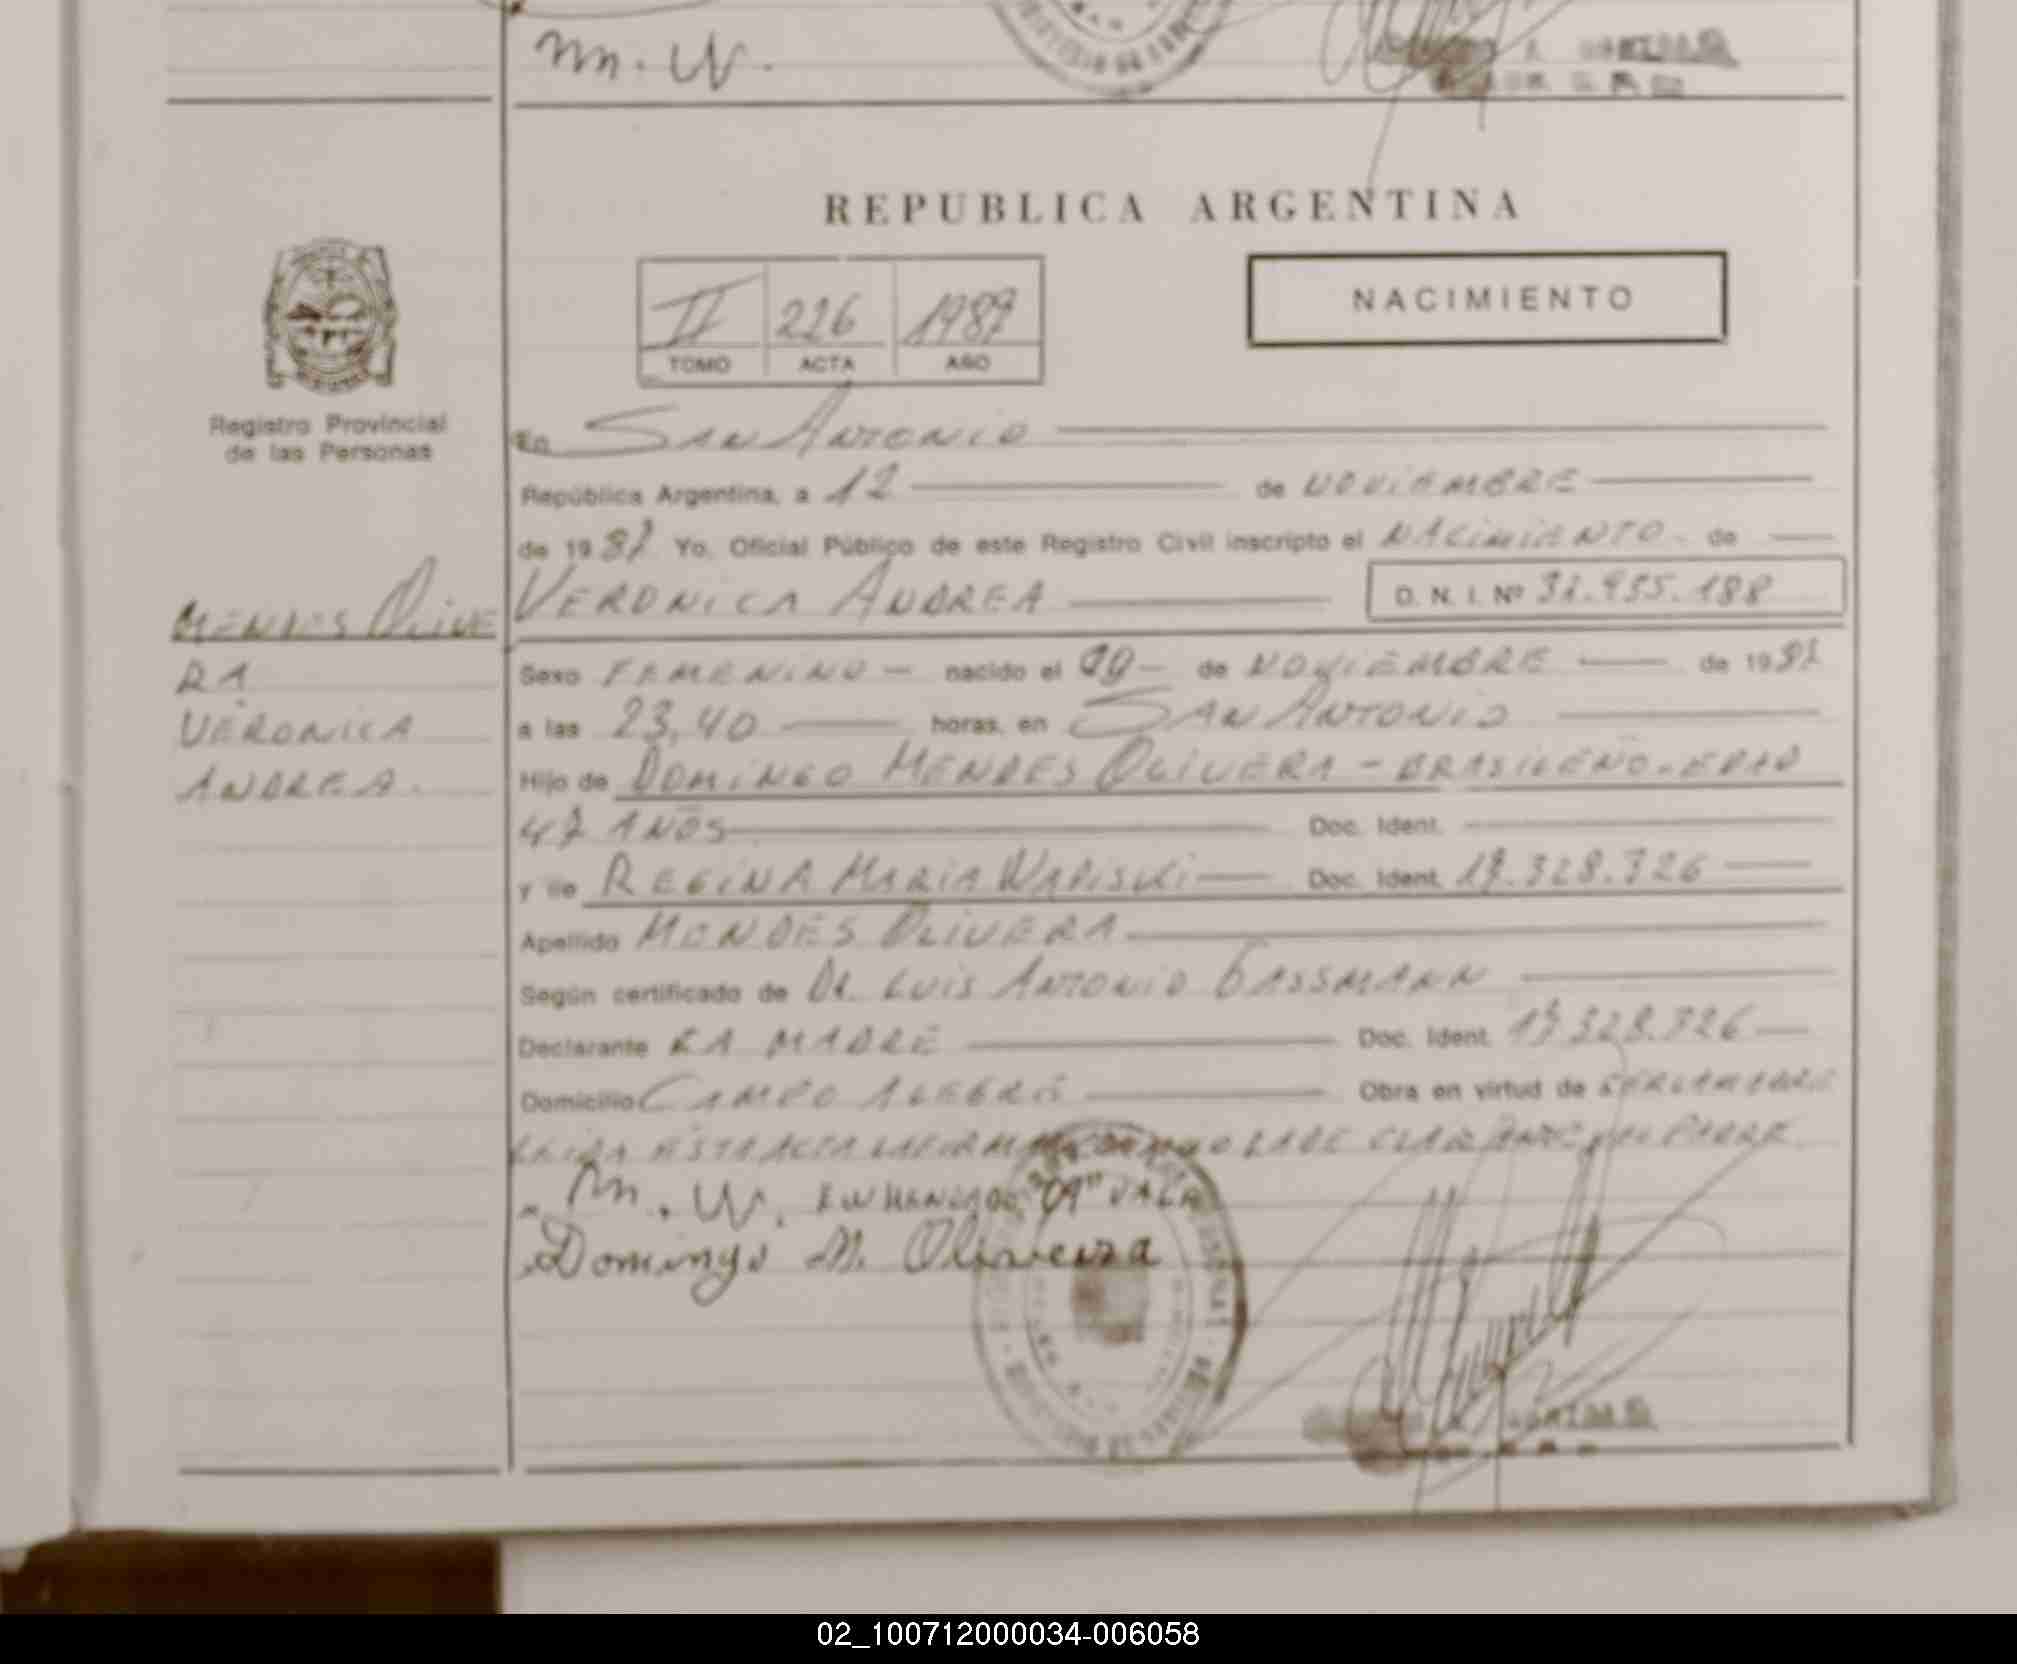 m. W.
REPUBLICA ARGENTINA
II 226 1987
TOMO ACTA AÑO
NACIMIENTO
Registro Provincial
de las Personas
En SAN ANTONIO
República Argentina, a 12 de NOVIEMBRE
de 1987 Yo, Oficial Público de este Registro Civil inscripto el NACIMIENTO - de
VERONICA ANDREA D. N. I. Nº
MENDES OLIVE
RA
VERONICA
ANDREA.
Sexo FEMENINO - nacido el 09 - de NOVIEMBRE de 1987
a las 23,40 horas, en SAN ANTONIO
Hijo de DOMINGO MENDES OLIVERA - BRASILEÑO - EDAD
47 AÑOS Doc. Ident.
y de REGINA MARIA Doc. Ident. 19.328.726
Apellido MENDES OLIVERA
Según certificado de Dr. LUIS ANTONIO GASSMANN
Declarante LA MADRE Doc. Ident. 19.328.726
Domicilio CAMPO ALEGRE Obra en virtud de SER LA MADRE
LEIDA ESTA ACTA LA FIRMAN LA DECLARANTE Y EL PADRE
m. W. ENMENDADO "09" VALE
Domingo M. Oliveira
02_100712000034-006058